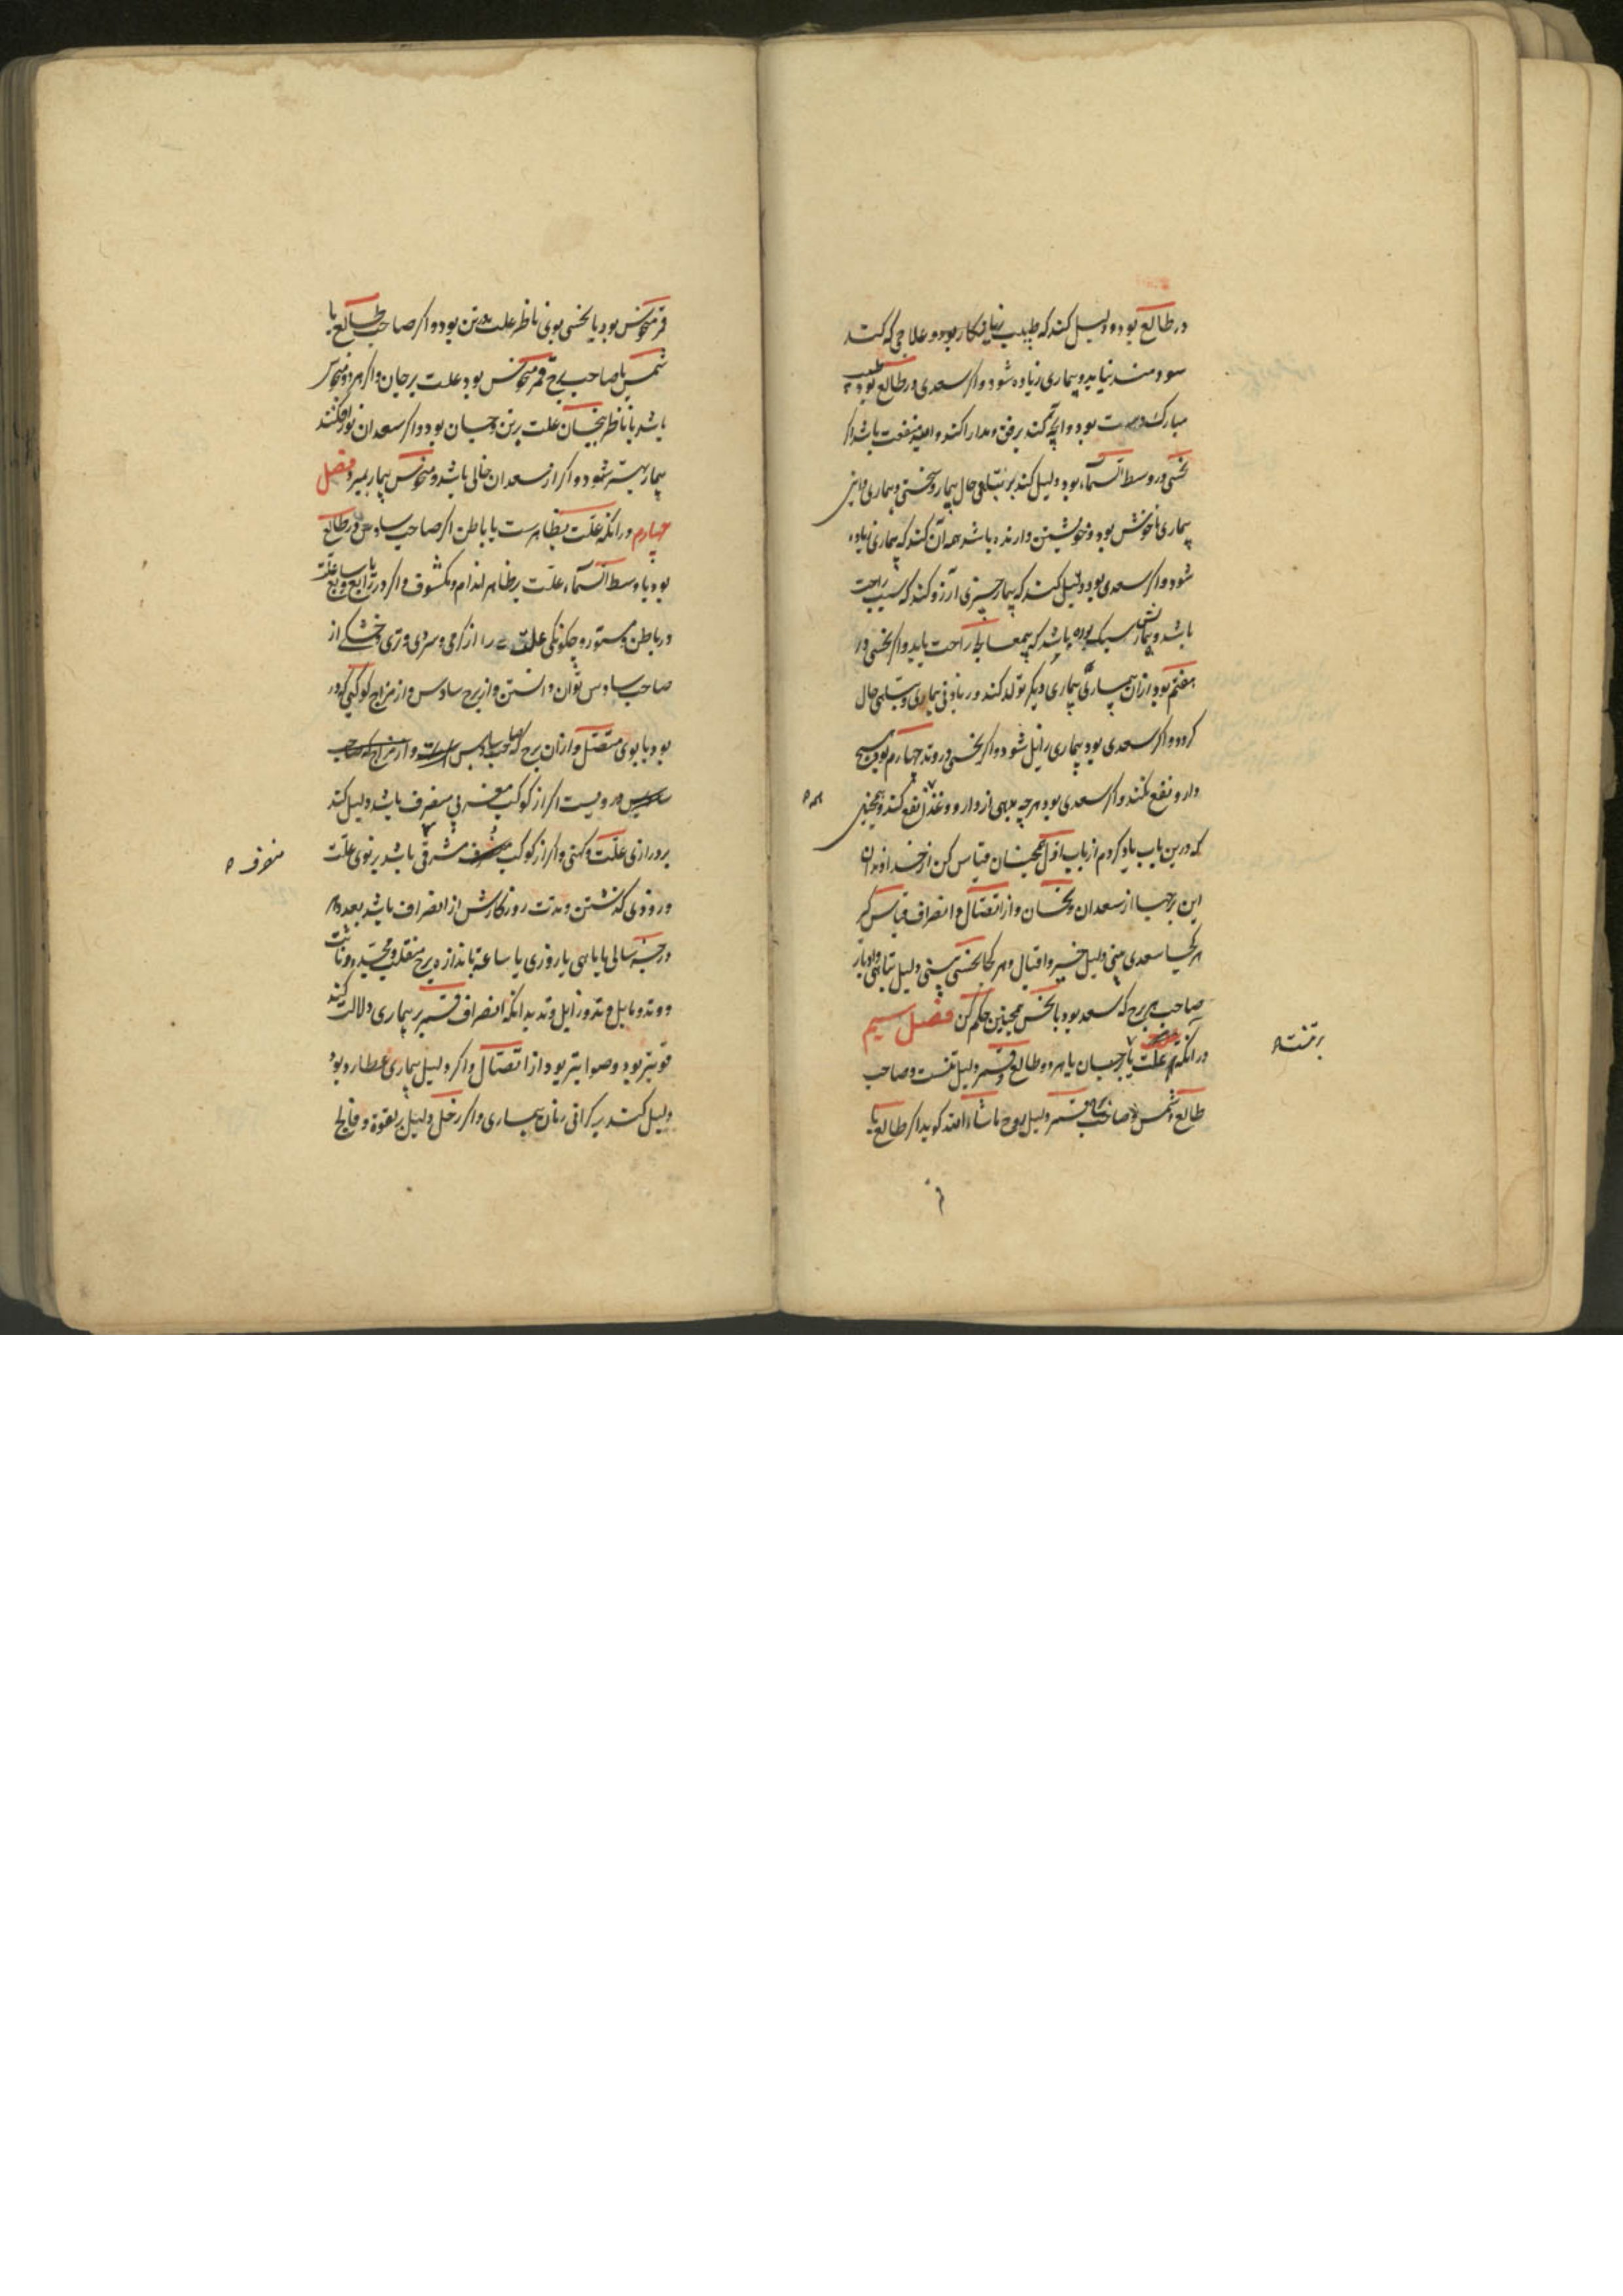 در طالع بود دلیل کند که طبیب زیان کار بود و علاجی که کند
سودمند نیاید و بیماری زیاده شود و اکر سعدی در طالع بود طبیب
مبارک دست بود و آنچه کند برفق و مدارا کند و امید منفعت باشد اکر
نحسی در وسط السماء بود دلیل کند بر تباهی حال بیمار و سختی و بیماری و این
بیماری ناخوش بود و خویشتن دار نه باشد همه آن کند که بیماری زیاده
شود و اکر سعدی بود دلیل کند که بیمار چیزی آرزو کند که سبب راحت
باشد و بیماریش سبک بوده باشد که بمعالجه راحت یابد و اکر نحسی در
هفتم بود ازان بیماری بیماری دیکر تولد کند در زیادتی بیماری و تباهی حال
کردد و اکر سعدی بود بیماری زایل شود و اکر نحسی در وتد چهارم بود هیچ
دارو نفع نکند و اکر سعدی بود هرچه بدهی از دارو و غذا نفع کند و همچنین
همه
که درین باب یاد کردم از باب اول همچنان قیاس کن از خداوندان
این برجها از سعدان و نحسان و از اتصال و انصراف قیاس کیر
هر کجا سعدی بینی دلیل خیر و اقبال و هر کجا نحسی بینی دلیل تباهی و ادبار
صاحب هر برج که سعد بود یا نحس همچنین حکم کن فصل سیم
در آنکه علت بر تنست یا بر جان یا هر دو طالع و قمر دلیل تنست و صاحب
بر تنست
طالع و شمس و صاحب قمر دلیل روح ماشاءالله کوید اکر طالع یا
قمر منحوس بود یا نحسی بوی ناظر علت بر تن بود و اکر صاحب طالع یا
شمس یا صاحب برج قمر منحوس بود علت بر جان و اکر هر دو منحوس
باشد یا ناظر بنحسان علت بر تن و جان بود و اکر سعدان نظر افکنند
بیمار بهتر شود و اکر از سعدان خالی باشد و منحوس بیمار بمیرد فصل
چهارم در آنکه علت بظاهرست یا باطن اکر صاحب سادس در طالع
بود یا وسط السماء علت بر ظاهر اندام و مکشوف و اکر در رابع و یا سابع علت
در باطن و مستور و چکونکی علت را از کرمی و سردی و تری و خشکی از
صاحب سادس توان دانستن و از برج سادس و از مزاج کوکبی که در
بود یا بوی متصل و ازان برج که صاحب سادس در است و از مزاج که صاحب
سادس در ویست اکر از کوکب مغربی منصرف باشد دلیل کند
بر درازی علت و کهنی و اکر از کوکب مشرقی باشد بر نوی علت
منصرف
و زودی کذشتن و مدت روزکارش از انصراف باشد بعدد هر
درجه سالی یا ماهی یا روزی یا ساعة باندازه برج منقلب و مجسد و ثابت
و وتد و مایل وتد و زایل وتد بدانکه انصراف قمر بر بیماری دلالت کند
قویتر بود و صوابتر بود از اتصال و اکر دلیل بیماری عطارد بود
دلیل کند بر کرانی زبان بیماری و اکر زحل دلیل بر لقوة و فالج